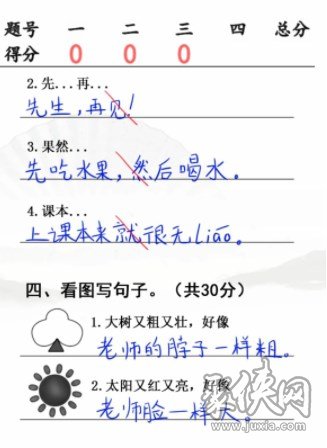 题号 一 二 三 四 总分
得分 0 0 0
2. 先...再...
先生，再见！
3. 果然...
先吃水果，然后喝水。
4. 课本...
上课本来就很无liáo。
四、看图写句子。（共30分）
1. 大树又粗又壮，好像
老师的脖子一样粗。
2. 太阳又红又亮，好像
老师脸一样大。
www.juxia.com